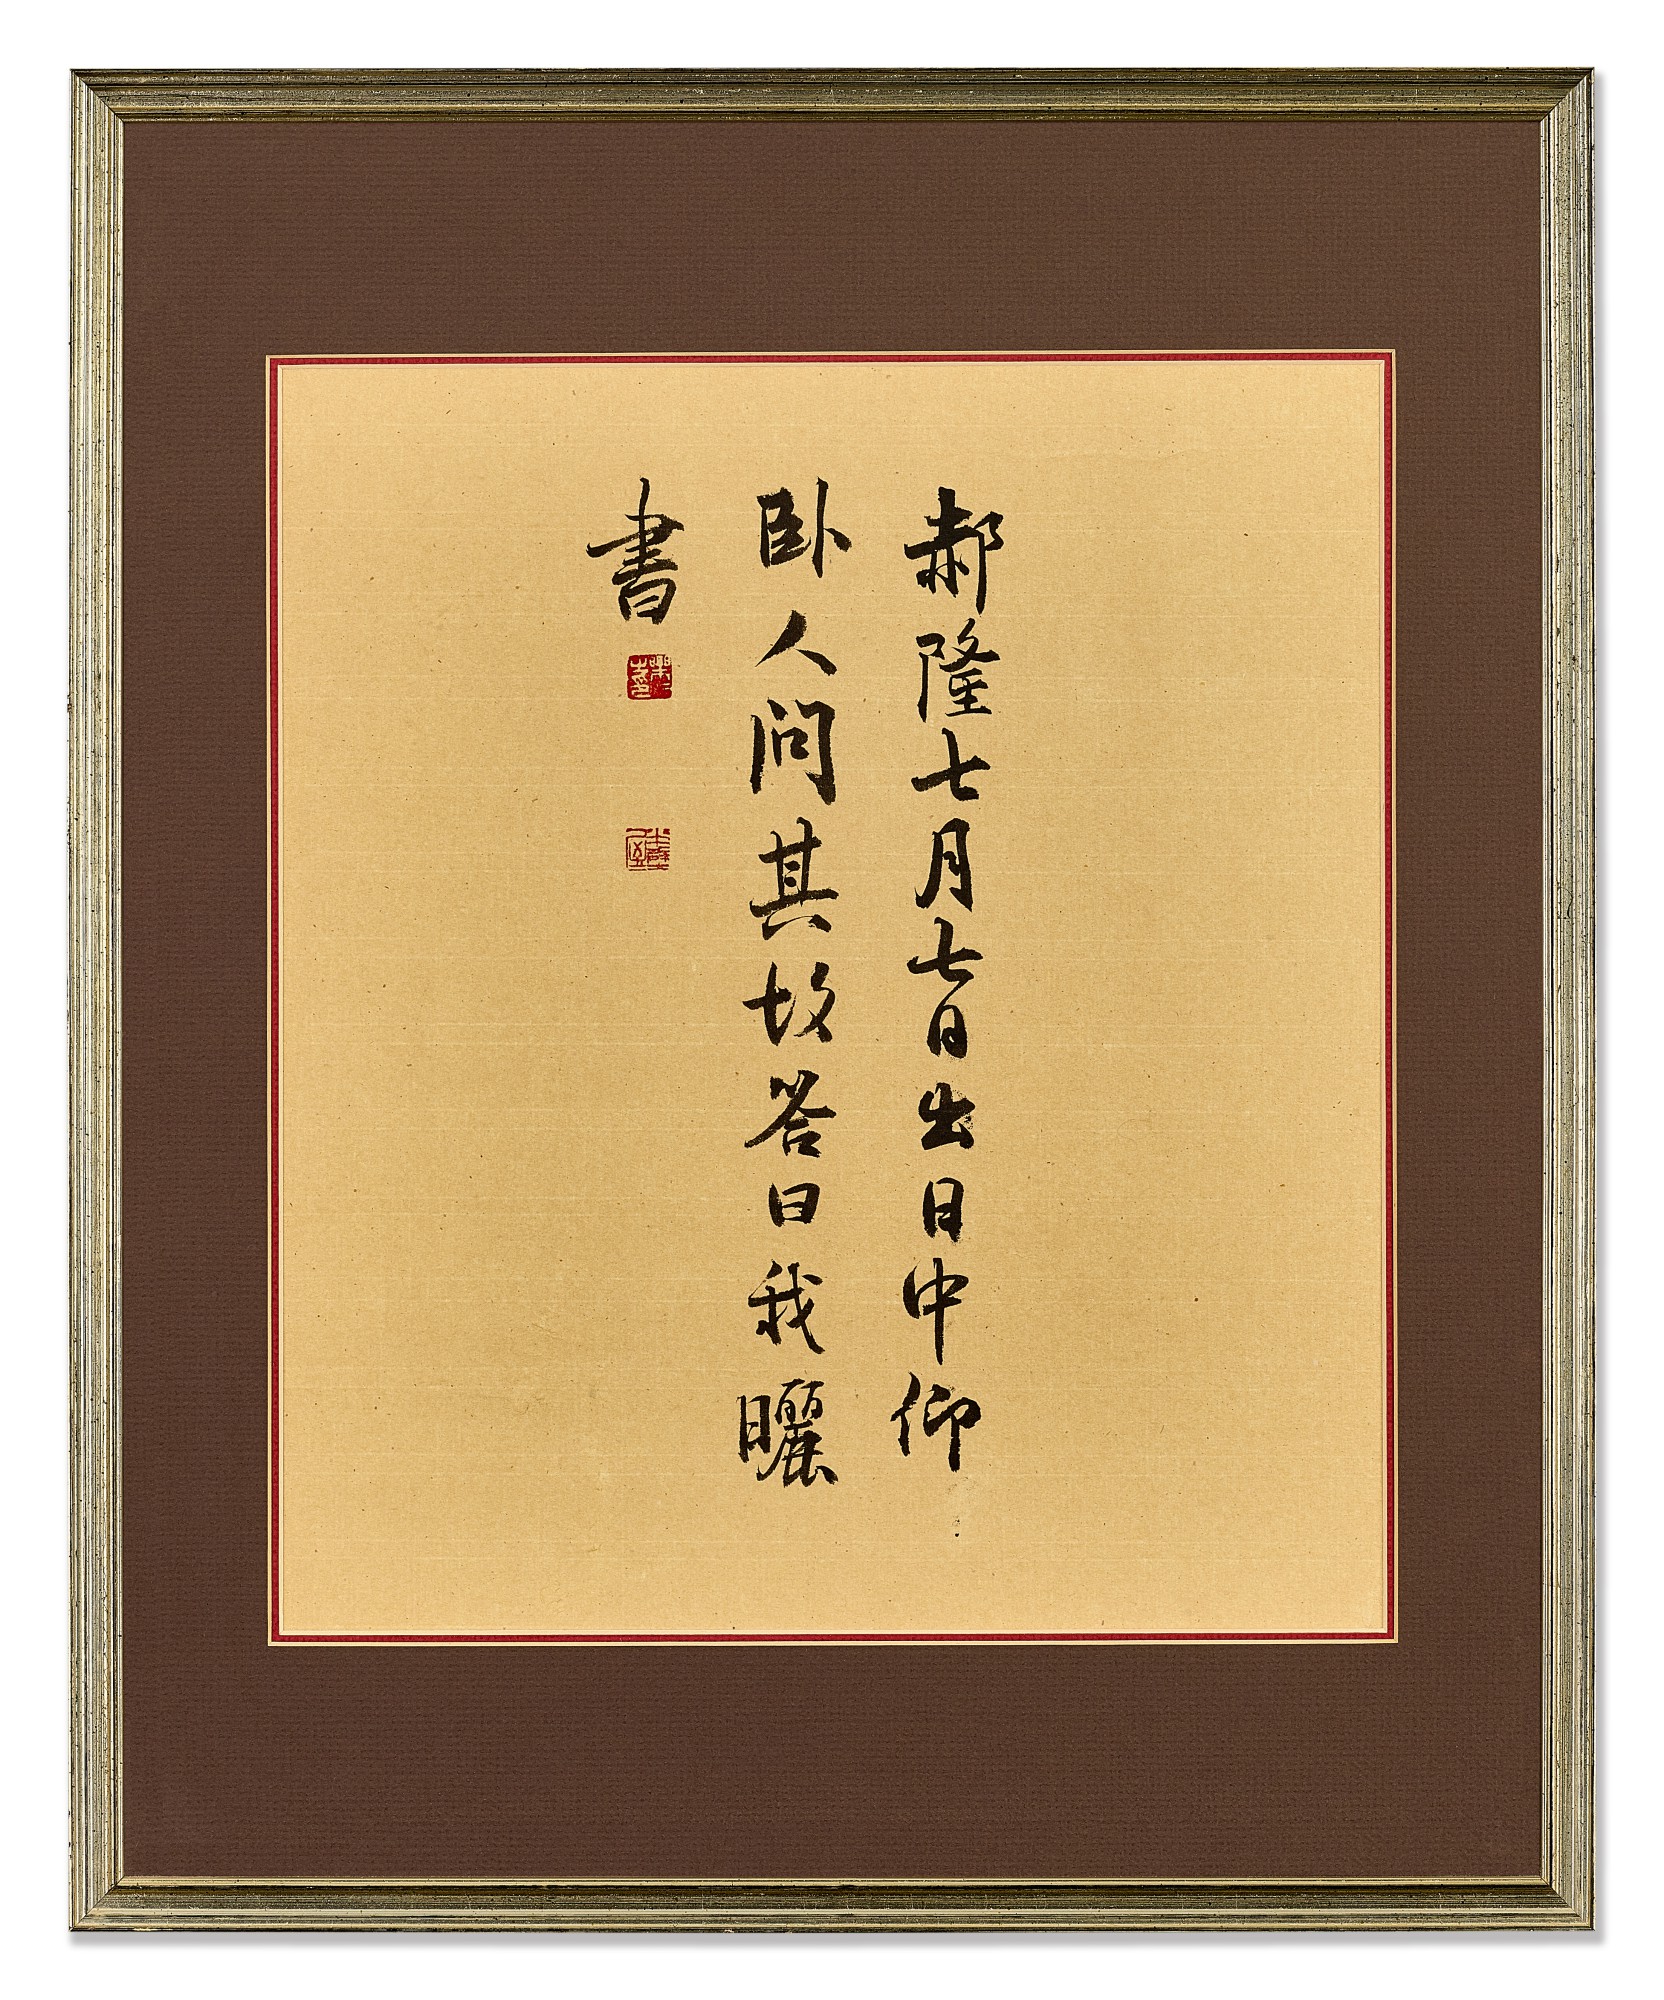 郝隆七月七日出日中仰
卧人問其故答曰我曬
書